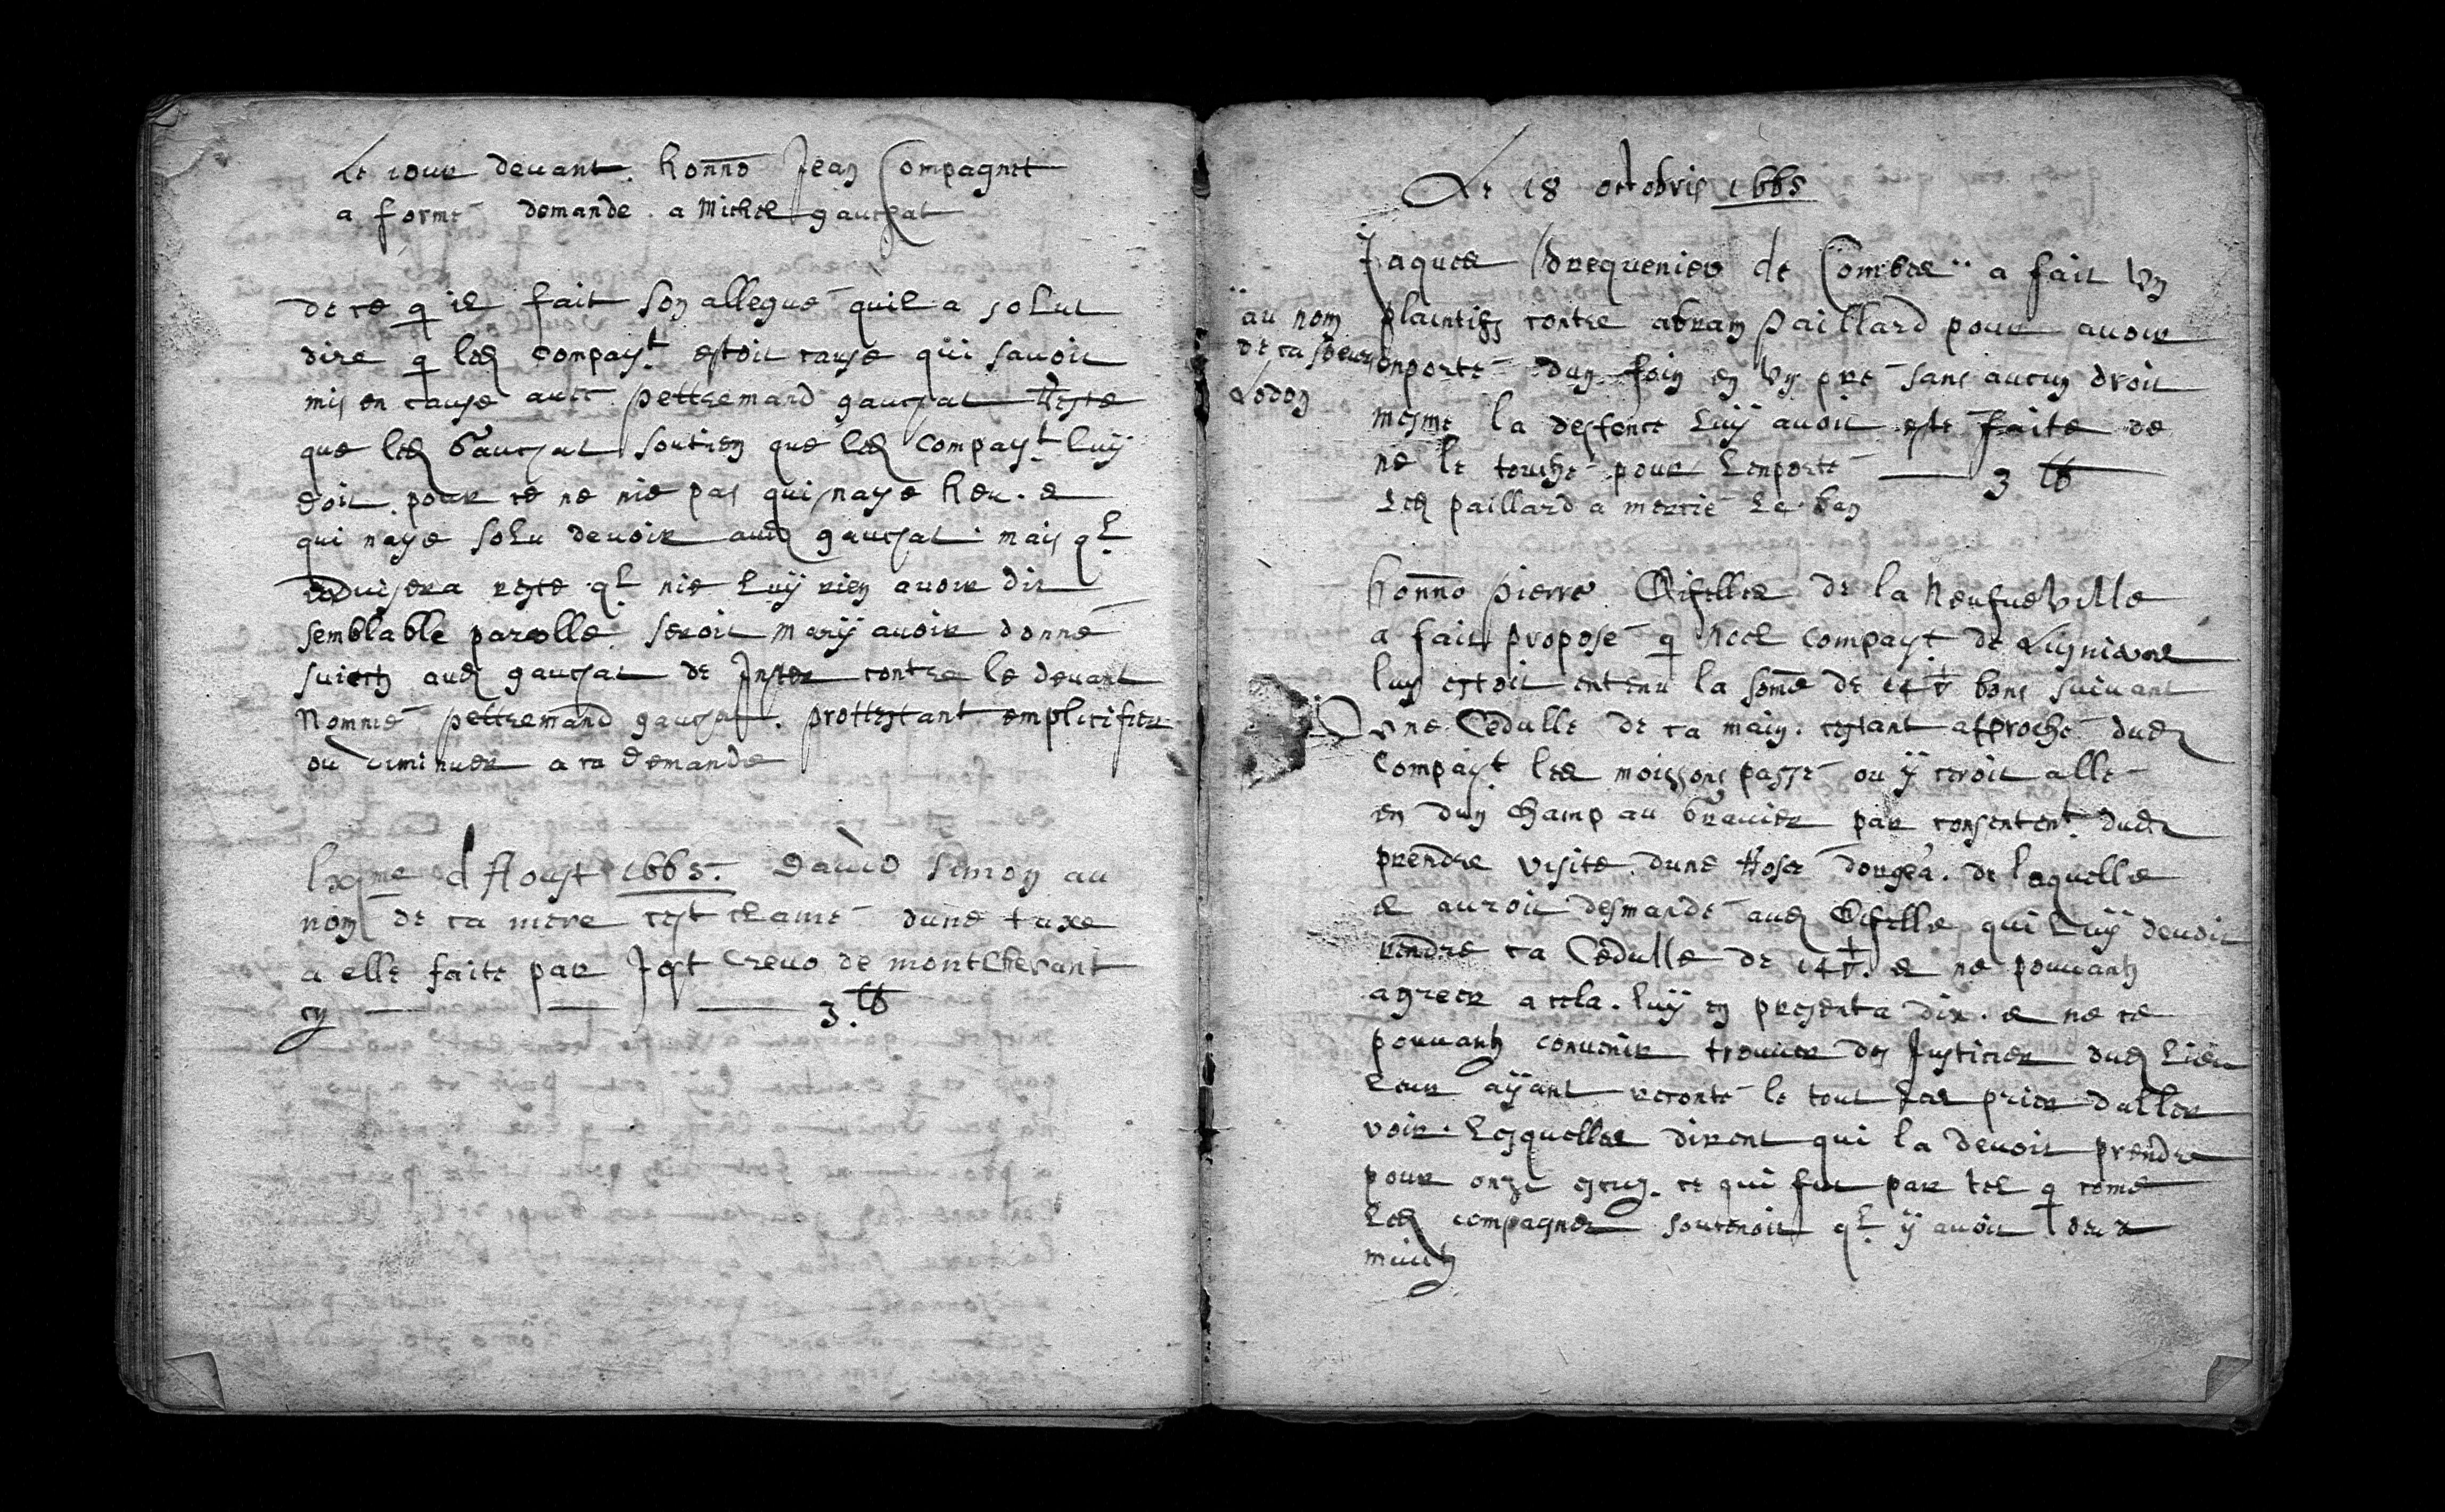 Le iour deuant. honno Jean Compagnet
a formé demande. a Michel gauchat
de ce q il fait son allegué quil a solut
dire q led compayt estoit cause qui sauoit
mis en cause auec pettremand gauchat
que led Gauchat soutien que led compayt luy
doit. pour ce ne nie pas qui naye heu. e
qui naye solu deuoir aud gauchat. mais ql
reste ql nie luy rien auoir dit
semblable parolle seroit mary auoir donné
suiectz aud gauchat de contre le deuant
Nommé pettremand gauchat. prottestant emplicifier
ou diminuer a sa demande
me d Aoust 1665. Dauid Simon au
nom de sa mere cest clamé dune taxe
a elle faite par Jost Creuo de montchevant
cy 3. lb
Le 18 octobris 1665
Jaques de Combes a fait vn
au nom
de sa soeur
Lodon
plaintifz contre abram paillard pour auoir
enporté dun foin en vn pré sans aucun droit
mesme la desfence luy auoit esté faite de
ne le touché pour lenporté 3 lb
Led paillard a mercié Le ban
honno pierre de la Neufueville
a fait proposé q Noel compayt de Lignieres
luy estoit entenu la some de 14 bons suiuant
vne Cedulle de sa main. estant approché dud
Compayt les moissons passé ou y seroit allé
en dun champ au Grauier par consentent. dud
prendre visite. dune dorgea. de laquelle
il auroit desmandé aud qui luy deuoit
rendre sa Cedulle de 14. e ne pouuantz
agreer a cela. luy en presenta dix. e ne ce
pouuantz conuenir trouuer des Justicier dud lieu
Leur ayant reconté le tout Les prier daller
voir. Lesquelles dirent qui la deuoit prendre
pour onze escuz. ce qui fut par tel q come
Led compagnet soutenoit ql y auoit deux
muidz